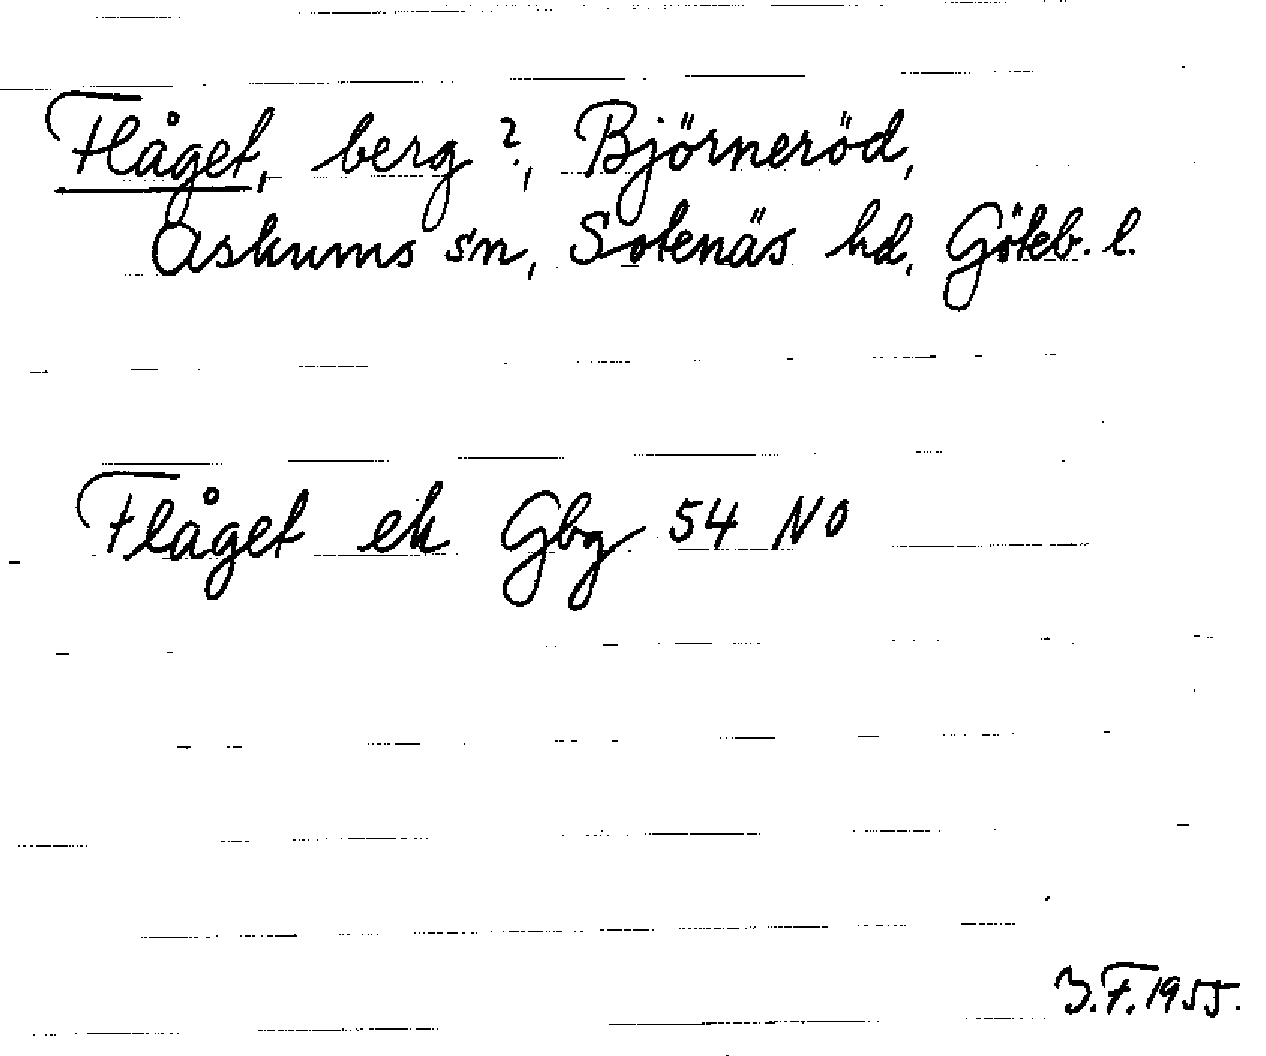 Flåget, berg?, Björneröd,
Askums sn, Sotenäs hd, Göteb. l.
Flåget ek Gbg 54 NO
J.F. 1955.